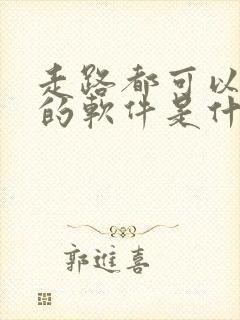 走路都可以
的軟件是什
郭進喜